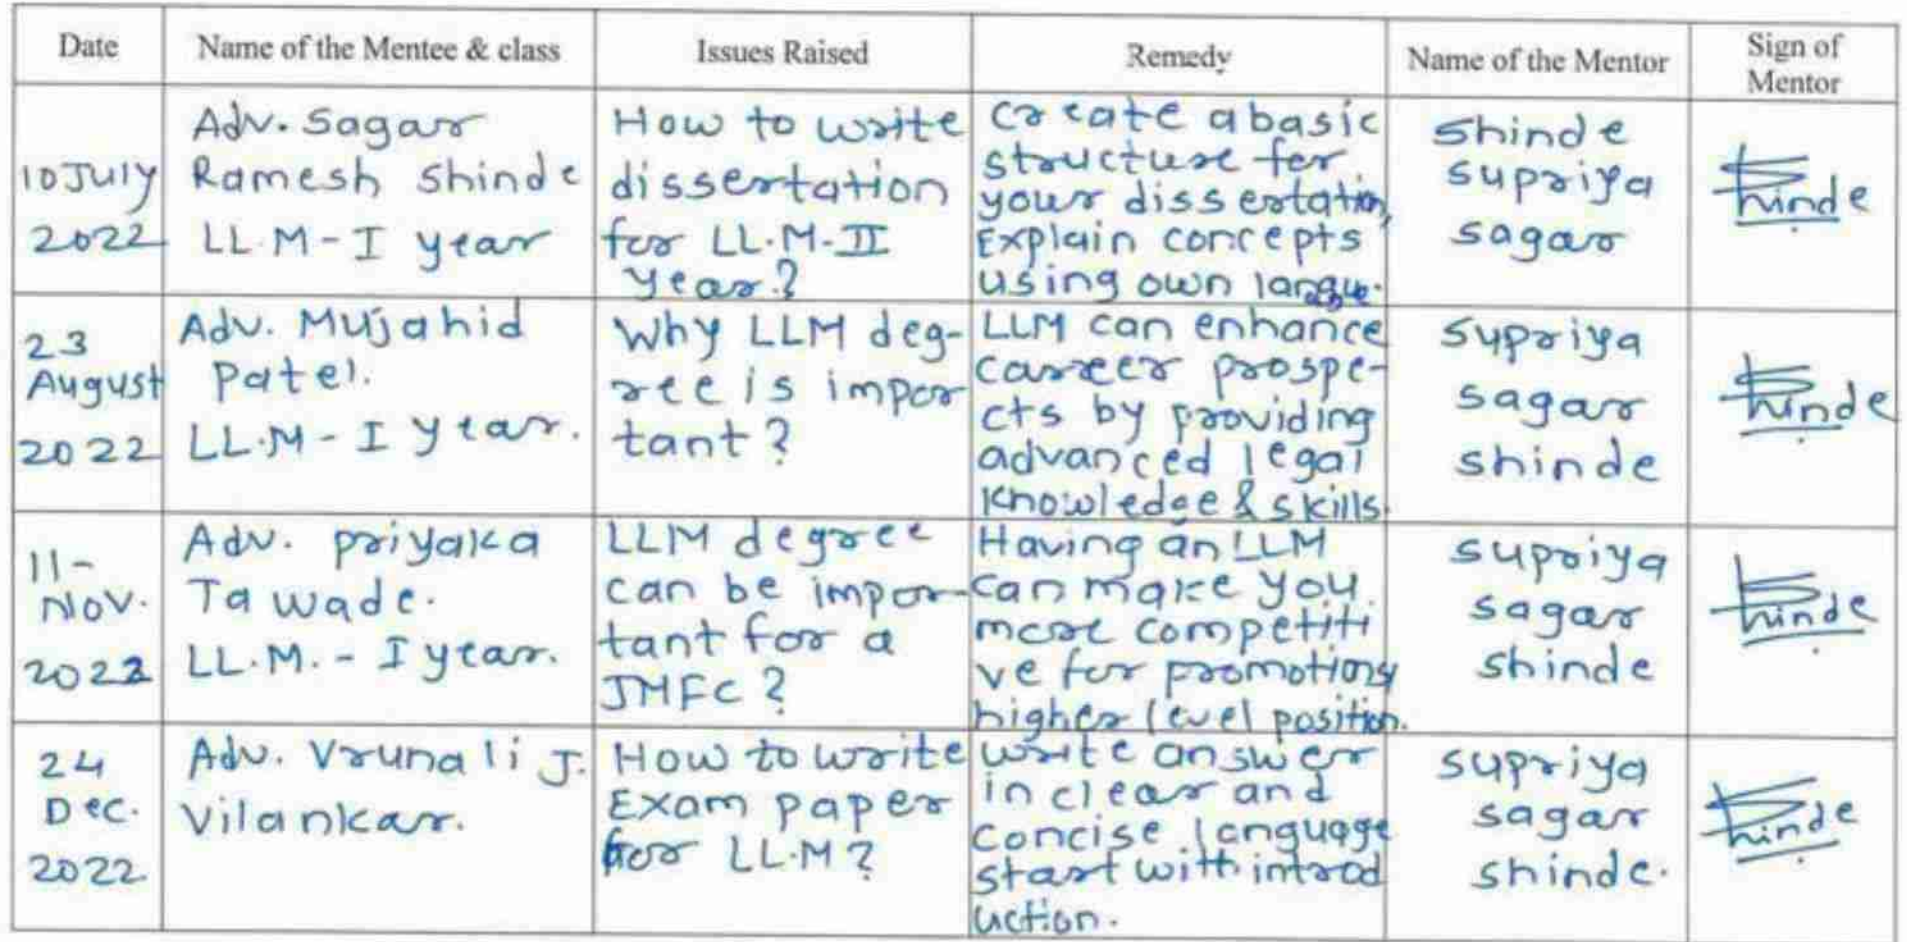 Date
Name of the Mentee & class
Issues Raised
Remedy
Name of the Mentor
Sign of
Mentor
10 July
2022
Adv. Sagar
Ramesh Shinde
LL.M - I year
How to write
dissertation
for LL.M-II
year.?
Create a basic
structure for
your dissertation,
Explain concepts
using own language.
Shinde
Supriya
sagar
Shinde
23
August
2022
Adv. Mujahid
Patel.
LL.M - I year.
Why LLM deg-
ree is impor
tant?
LLM can enhance
career prospe-
cts by providing
advanced legal
knowledge & skills.
Supriya
sagar
shinde
Shinde
11-
Nov.
2022
Adv. Priyaka
Tawade.
LL.M. - I year.
LLM degree
can be impor-
tant for a
JMFC?
Having an LLM
can make you
more competiti
ve for promotions
higher level position.
Supriya
sagar
shinde
Shinde
24
Dec.
2022
Adv. Vrunali J.
Vilankar.
How to write
Exam paper
for LL.M?
write answer
in clear and
concise language
start with introd
uction.
Supriya
sagar
shinde.
Shinde